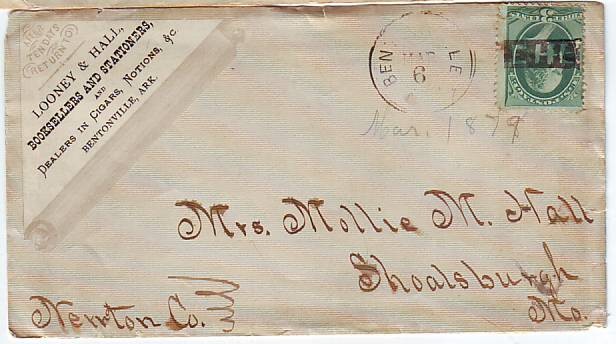 IF NOT
IN TEN DAYS
RETURN TO
LOONEY & HALL,
BOOKSELLERS AND STATIONERS,
AND
DEALERS IN CIGARS, NOTIONS, &c.
BENTONVILLE, ARK.
BEN LE
6
Mar. 1879
Mrs. Mollie M. Hall
Shoalsburgh
Newton Co. Mo.